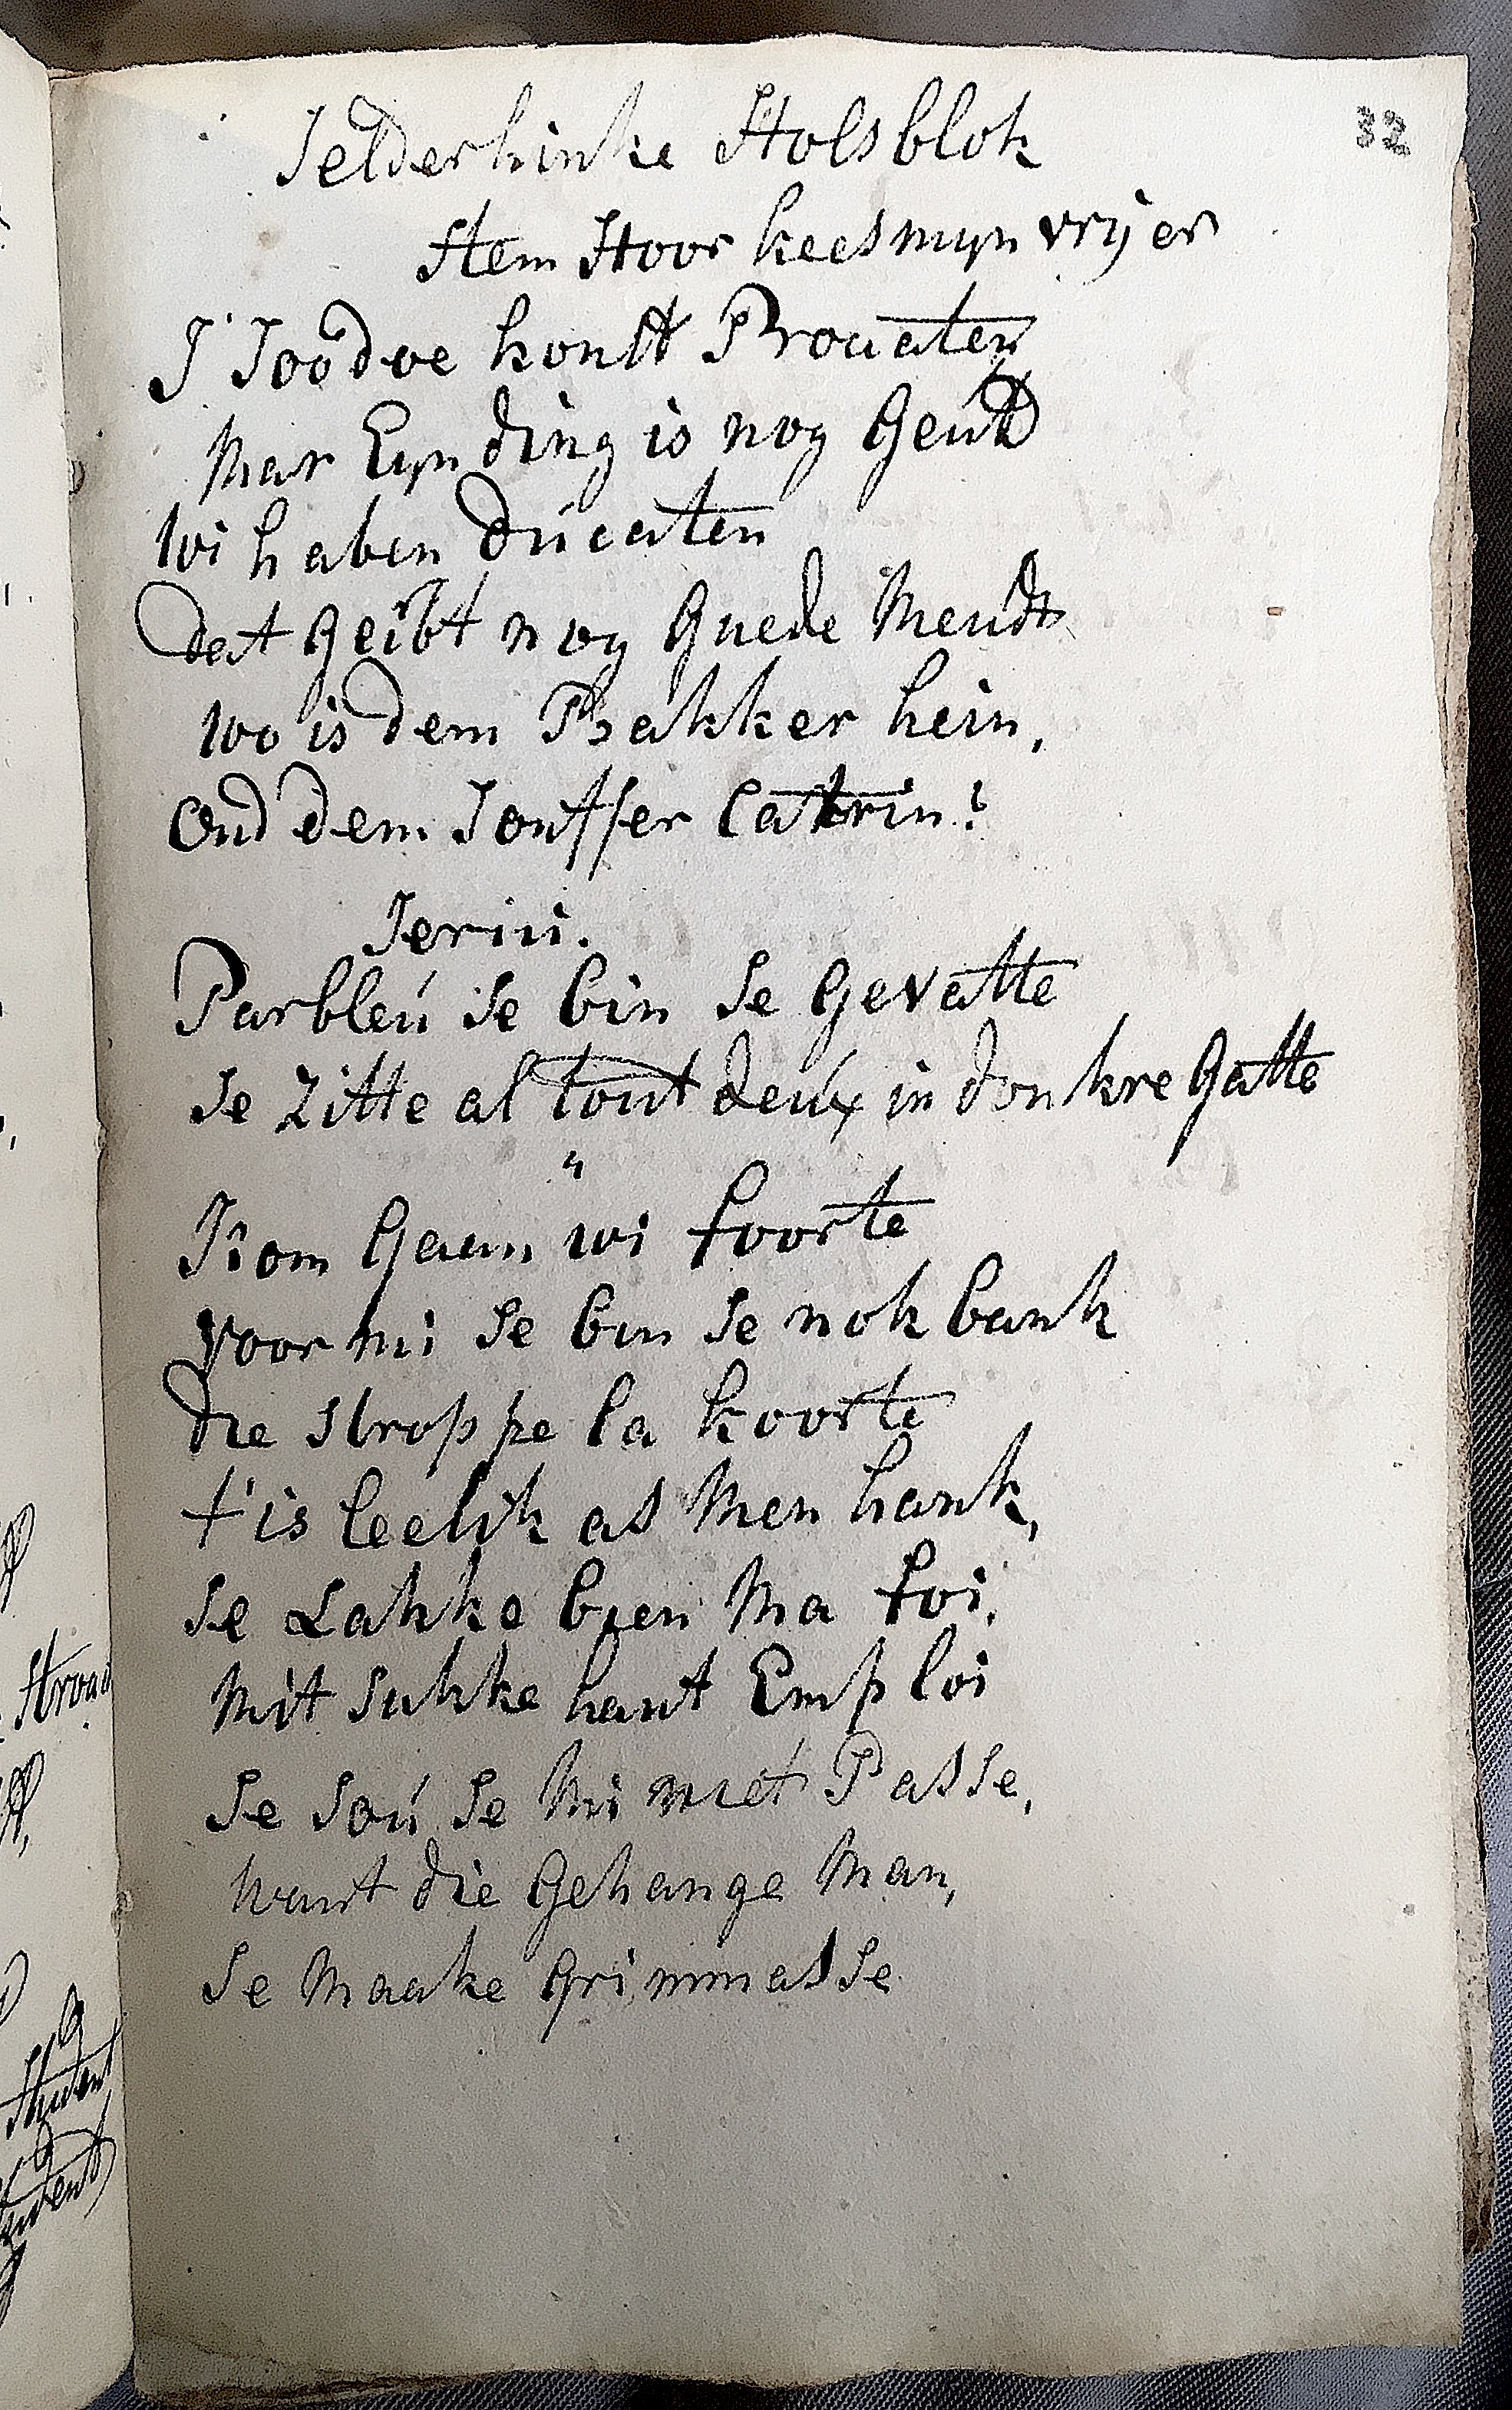 32
Jelderhinke Holsblok
Stem Hoor kees myn vrijer
J Joodve konst Prouaten
Mar Eyn ding is nog Geut
Wi haben ducaten
dat Geibt nog Guede Meudt
wo is dem Bakker hein,
Ond dem Jouffer Catrin?
Jerini.
Parbleú se bin se Gevatte
Se Zitte al tout deúx in donkre Gatte
"
Kom Gaan wi foorte
Voor mi se bin se nok bank
Die stroppe la koorte
t'is leelik as Men hank,
Se Lakke bien Ma foi,
Mit sukke hant Emploi
Se soú se Mi niet Passe,
Want die Gehange Man,
Se Maake Grimmasse